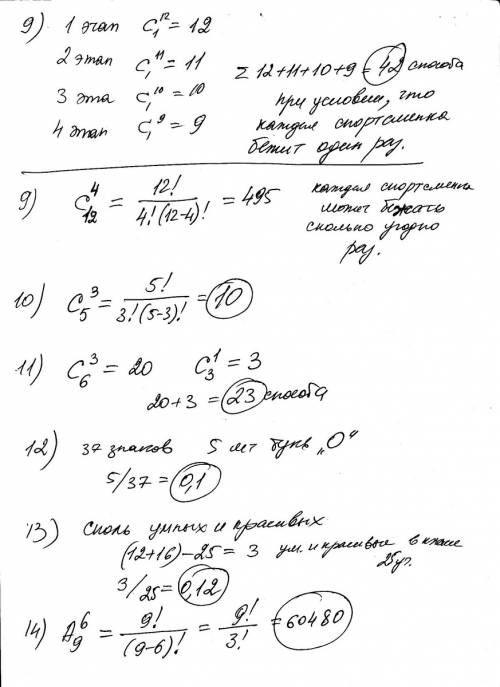 9) 1 этап C₁¹² = 12
2 этап C₁¹¹ = 11
3 эта C₁¹⁰ = 10
4 этап C₁⁹ = 9
Σ 12+11+10+9 = 42 способа
при условии, что
каждая спортсменка
бежит один раз.
9) C₁₂⁴ = 12! / 4!(12-4)! = 495
каждая спортсменка
может бежать
сколько угодно
раз.
10) C₅³ = 5! / 3!(5-3)! = 10
11) C₆³ = 20 C₃¹ = 3
20+3 = 23 способа
12) 37 знаков 5 букв „О“
5/37 = 0,1
13) умных и красивых
(12+16)-25 = 3 ум. и красивые в классе
25 уч.
3/25 = 0,12
14) A₉⁶ = 9! / (9-6)! = 9! / 3! = 60480